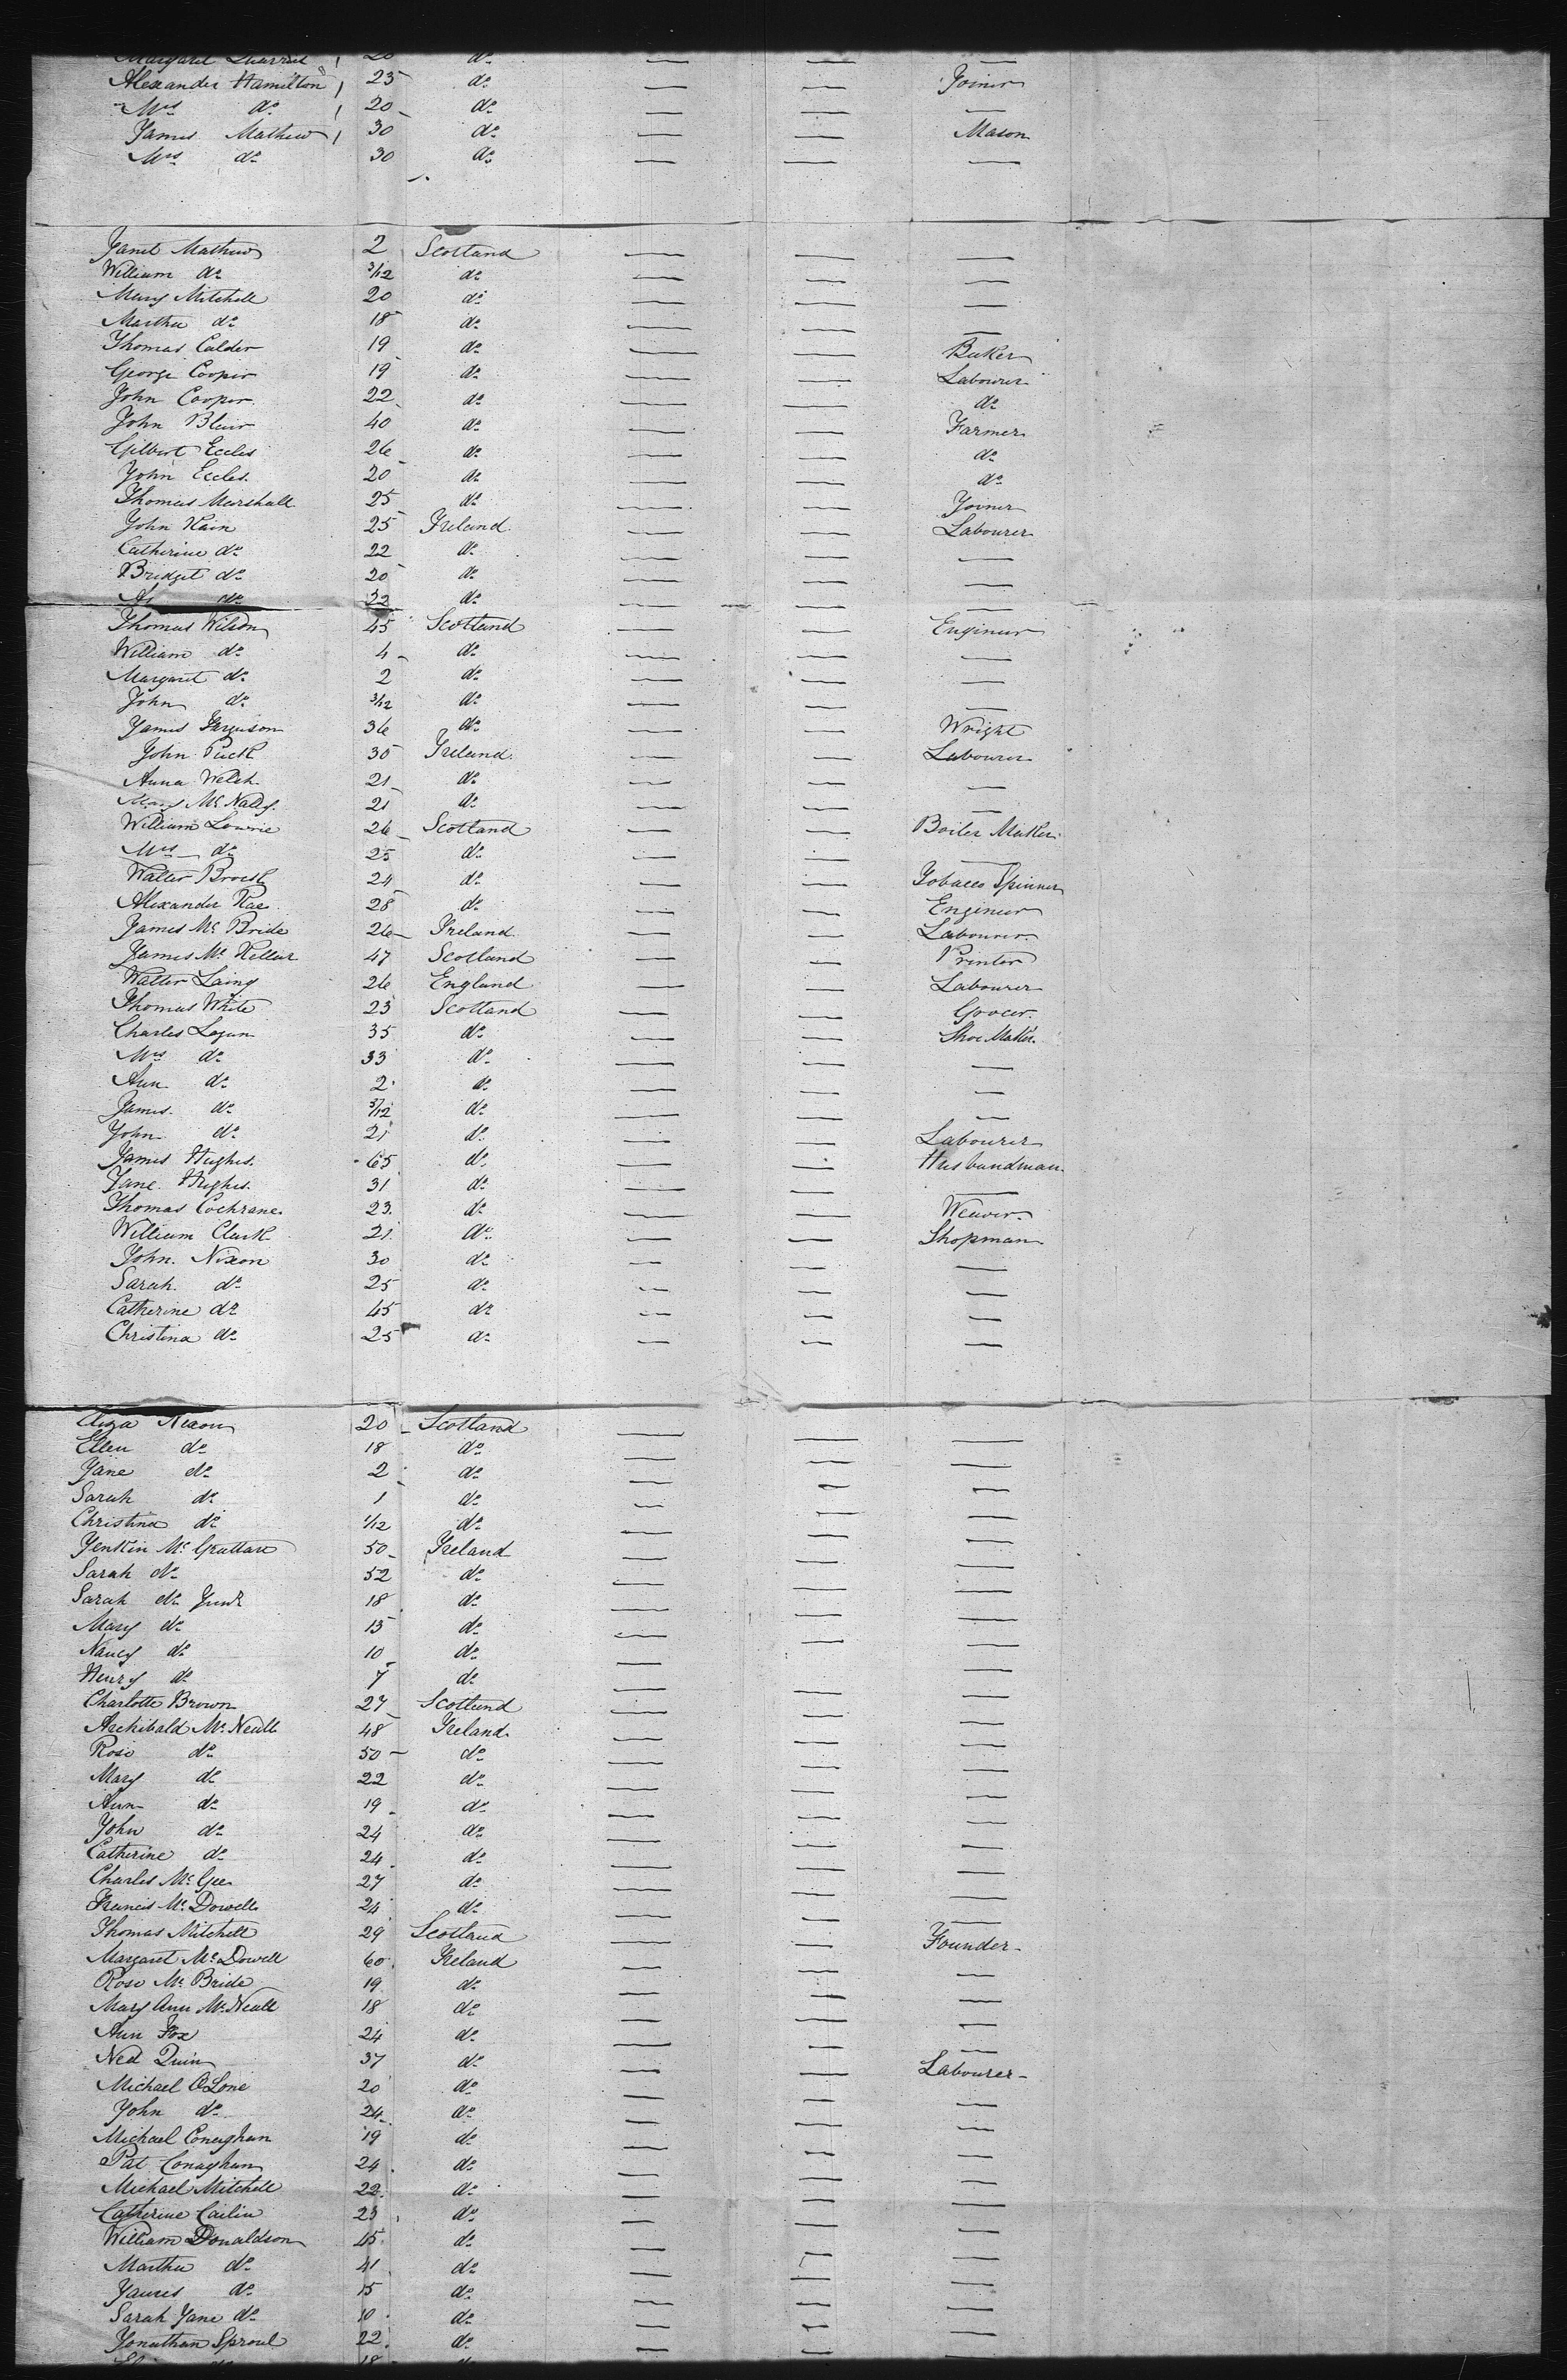 Margaret 20 do
Alexander Hamilton 23 do — — Joiner
Mrs do 20 do — — —
James Mathew 30 do — — Mason
Mrs do 30 do — — —
Janet Mathew 2 Scotland — — —
William do 3/12 do — — —
Mary Mitchell 20 do — — —
Martha do 18 do — — —
Thomas Calder 19 do — — Baker
George Cooper 19 do — — Labourer
John Cooper 22 do — — do
John Blair 40 do — — Farmer
Gilbert Eccles 26 do — — do
John Eccles 20 do — — do
Thomas Marshall 25 do — — Joiner
John Kain 25 Ireland — — Labourer
Catherine do 22 do — — —
Bridget do 20 do — — —
do 22 do — — —
Thomas Wilson 45 Scotland — — Engineer
William do 4 do — — —
Margaret do 2 do — — —
John do 3/12 do — — —
James Ferguson 36 do — — Wright
John 30 Ireland — — Labourer
Anna Welsh 21 do — — —
Mary McNally 21 do — — —
William Lowrie 26 Scotland — — Boiler Maker
Mrs do 25 do — — —
Walter 24 do — — Tobacco Spinner
Alexander Rae 28 do — — Engineer
James McBride 26 Ireland — — Labourer
James McKellar 47 Scotland — — Printer
Walter Laing 26 England — — Labourer
Thomas White 23 Scotland — — Grocer
Charles Logan 35 do — — Shoe Maker
Mrs do 33 do — — —
Ann do 2 do — — —
James do 3/12 do — — —
John do 21 do — — Labourer
James Hughes 65 do — — Husbandman
Jane Hughes 31 do — — —
Thomas Cochrane 23 do — — Weaver
William Clark 21 do — — Shopman
John Nixon 30 do — — —
Sarah do 25 do — — —
Catherine do 45 do — — —
Christina do 25 do — — —
Eliza Nixon 20 Scotland — — —
Ellen do 18 do — — —
Jane do 2 do — — —
Sarah do 1 do — — —
Christina do 1/12 do — — —
Jenkin McGrattan 50 Ireland — — —
Sarah do 52 do — — —
Sarah do Junr 18 do — — —
Mary do 13 do — — —
Nancy do 10 do — — —
Henry do 7 do — — —
Charlotte Brown 27 Scotland — — —
Archibald McNeill 48 Ireland — — —
Rose do 50 do — — —
Mary do 22 do — — —
Ann do 19 do — — —
John do 24 do — — —
Catherine do 24 do — — —
Charles McGee 27 do — — —
Francis McDowell 24 do — — —
Thomas Mitchell 29 Scotland — — Founder
Margaret McDowell 60 Ireland — — —
Rose McBride 19 do — — —
Mary Ann McNeill 18 do — — —
Ann Fox 24 do — — —
Ned Quin 37 do — — Labourer
Michael OLone 20 do — — —
John do 24 do — — —
Michael Conaghan 19 do — — —
Pat Conaghan 24 do — — —
Michael Mitchell 22 do — — —
Catherine Cailin 23 do — — —
William Donaldson 45 do — — —
Martha do 41 do — — —
James do 15 do — — —
Sarah Jane do 10 do — — —
Jonathan Sproul 22 do — — —
18